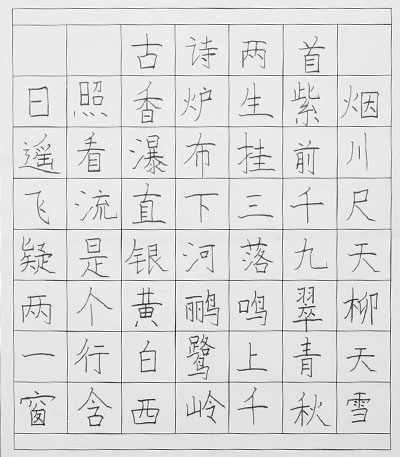 古诗两首
日照香炉生紫烟
遥看瀑布挂前川
飞流直下三千尺
疑是银河落九天
两个黄鹂鸣翠柳
一行白鹭上青天
窗含西岭千秋雪